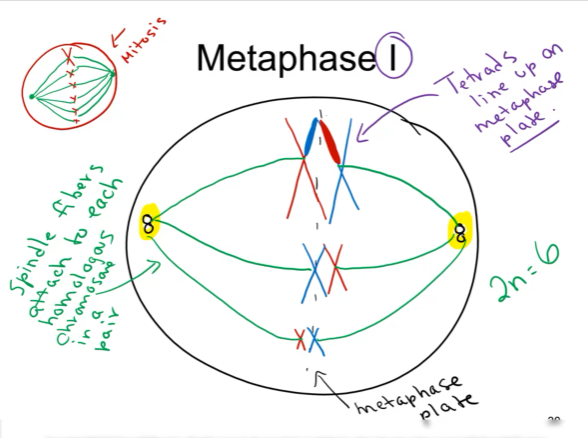 Mitosis
Metaphase I
Tetrads
line up on
metaphase
plate.
Spindle fibers
attach to each
homologous
chromosome
in a
pair
2n=6
metaphase
plate